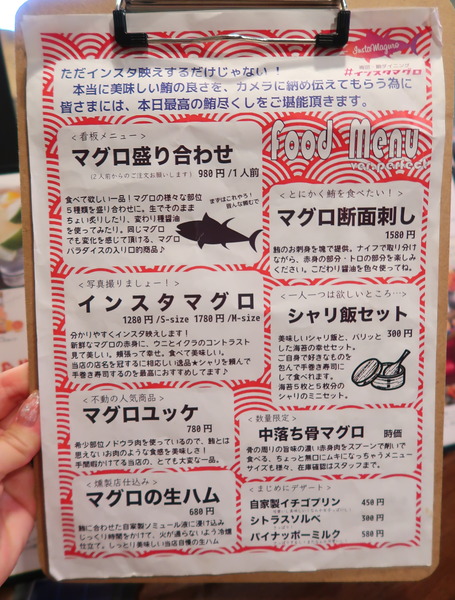 InstaMaguro
#インスタマグロ
ただインスタ映えするだけじゃない！
本当に美味しい鮪の良さを、カメラに納め伝えてもらう為に
皆さまには、本日最高の鮪尽くしをご堪能頂きます。
Food Menu
ver.perfect
＜看板メニュー＞
マグロ盛り合わせ
(2人前からのご注文お願いします) 980円/1人前
食べて欲しい一品！マグロの様々な部位
5種類を盛り合わせに。生でそのまま
ちょい炙りしたり、変わり種醤油
を使ってみたり。同じマグロ
でも変化を感じて頂ける、マグロ
パラダイスの入り口的商品♪
まずはこれやろ！
皆んな頼むで
＜写真撮りましょー！＞
インスタマグロ
1280円/S-size 1780円/M-size
分かりやすくインスタ映えします！
新鮮なマグロの赤身に、ウニとイクラのコントラスト
見て楽しい。頬張って幸せ。食べて美味しい。
当店の店名を冠するに相応しい逸品★シャリを頼んで
手巻き寿司するのを最高におすすめしてます♪
＜不動の人気商品＞
マグロユッケ
780円
希少部位ノドウラ肉を使っているので、鮪とは
思えないお肉のような食感を美味しさ！
手間暇かけてる当店の、とても大変な一品。
＜燻製店仕込み＞
マグロの生ハム
680円
鮪に合わせた自家製ソミュール液に浸け込み
じっくり時間をかけて、火が通らないよう冷燻
仕立て。しっとり美味しい当店自慢の生ハム
＜とにかく鮪を食べたい！＞
マグロ断面刺し
1580円
鮪のお刺身を塊で提供。ナイフで取り分け
ながら、赤身の部分・トロの部分を楽しみ
ください。こだわり醤油を色々使ってね。
＜一人一つは欲しいところ…＞
シャリ飯セット
300円
美味しいシャリ飯と、パリッと
した海苔の幸せセット。
ご自身で好きなものを
包んで手巻き寿司に
して食べれます。
海苔5枚と5枚分の
シャリのミニセット。
＜数量限定＞
中落ち骨マグロ 時価
骨の周りの旨味の濃い赤身肉をスプーンで削いで
食べる、ちょっと無口にムキになっちゃうメニュー
サイズも様々、在庫確認はスタッフまで。
＜まじめにデザート＞
自家製イチゴプリン 450円
シトラスソルベ 300円
パイナッポーミルク 580円